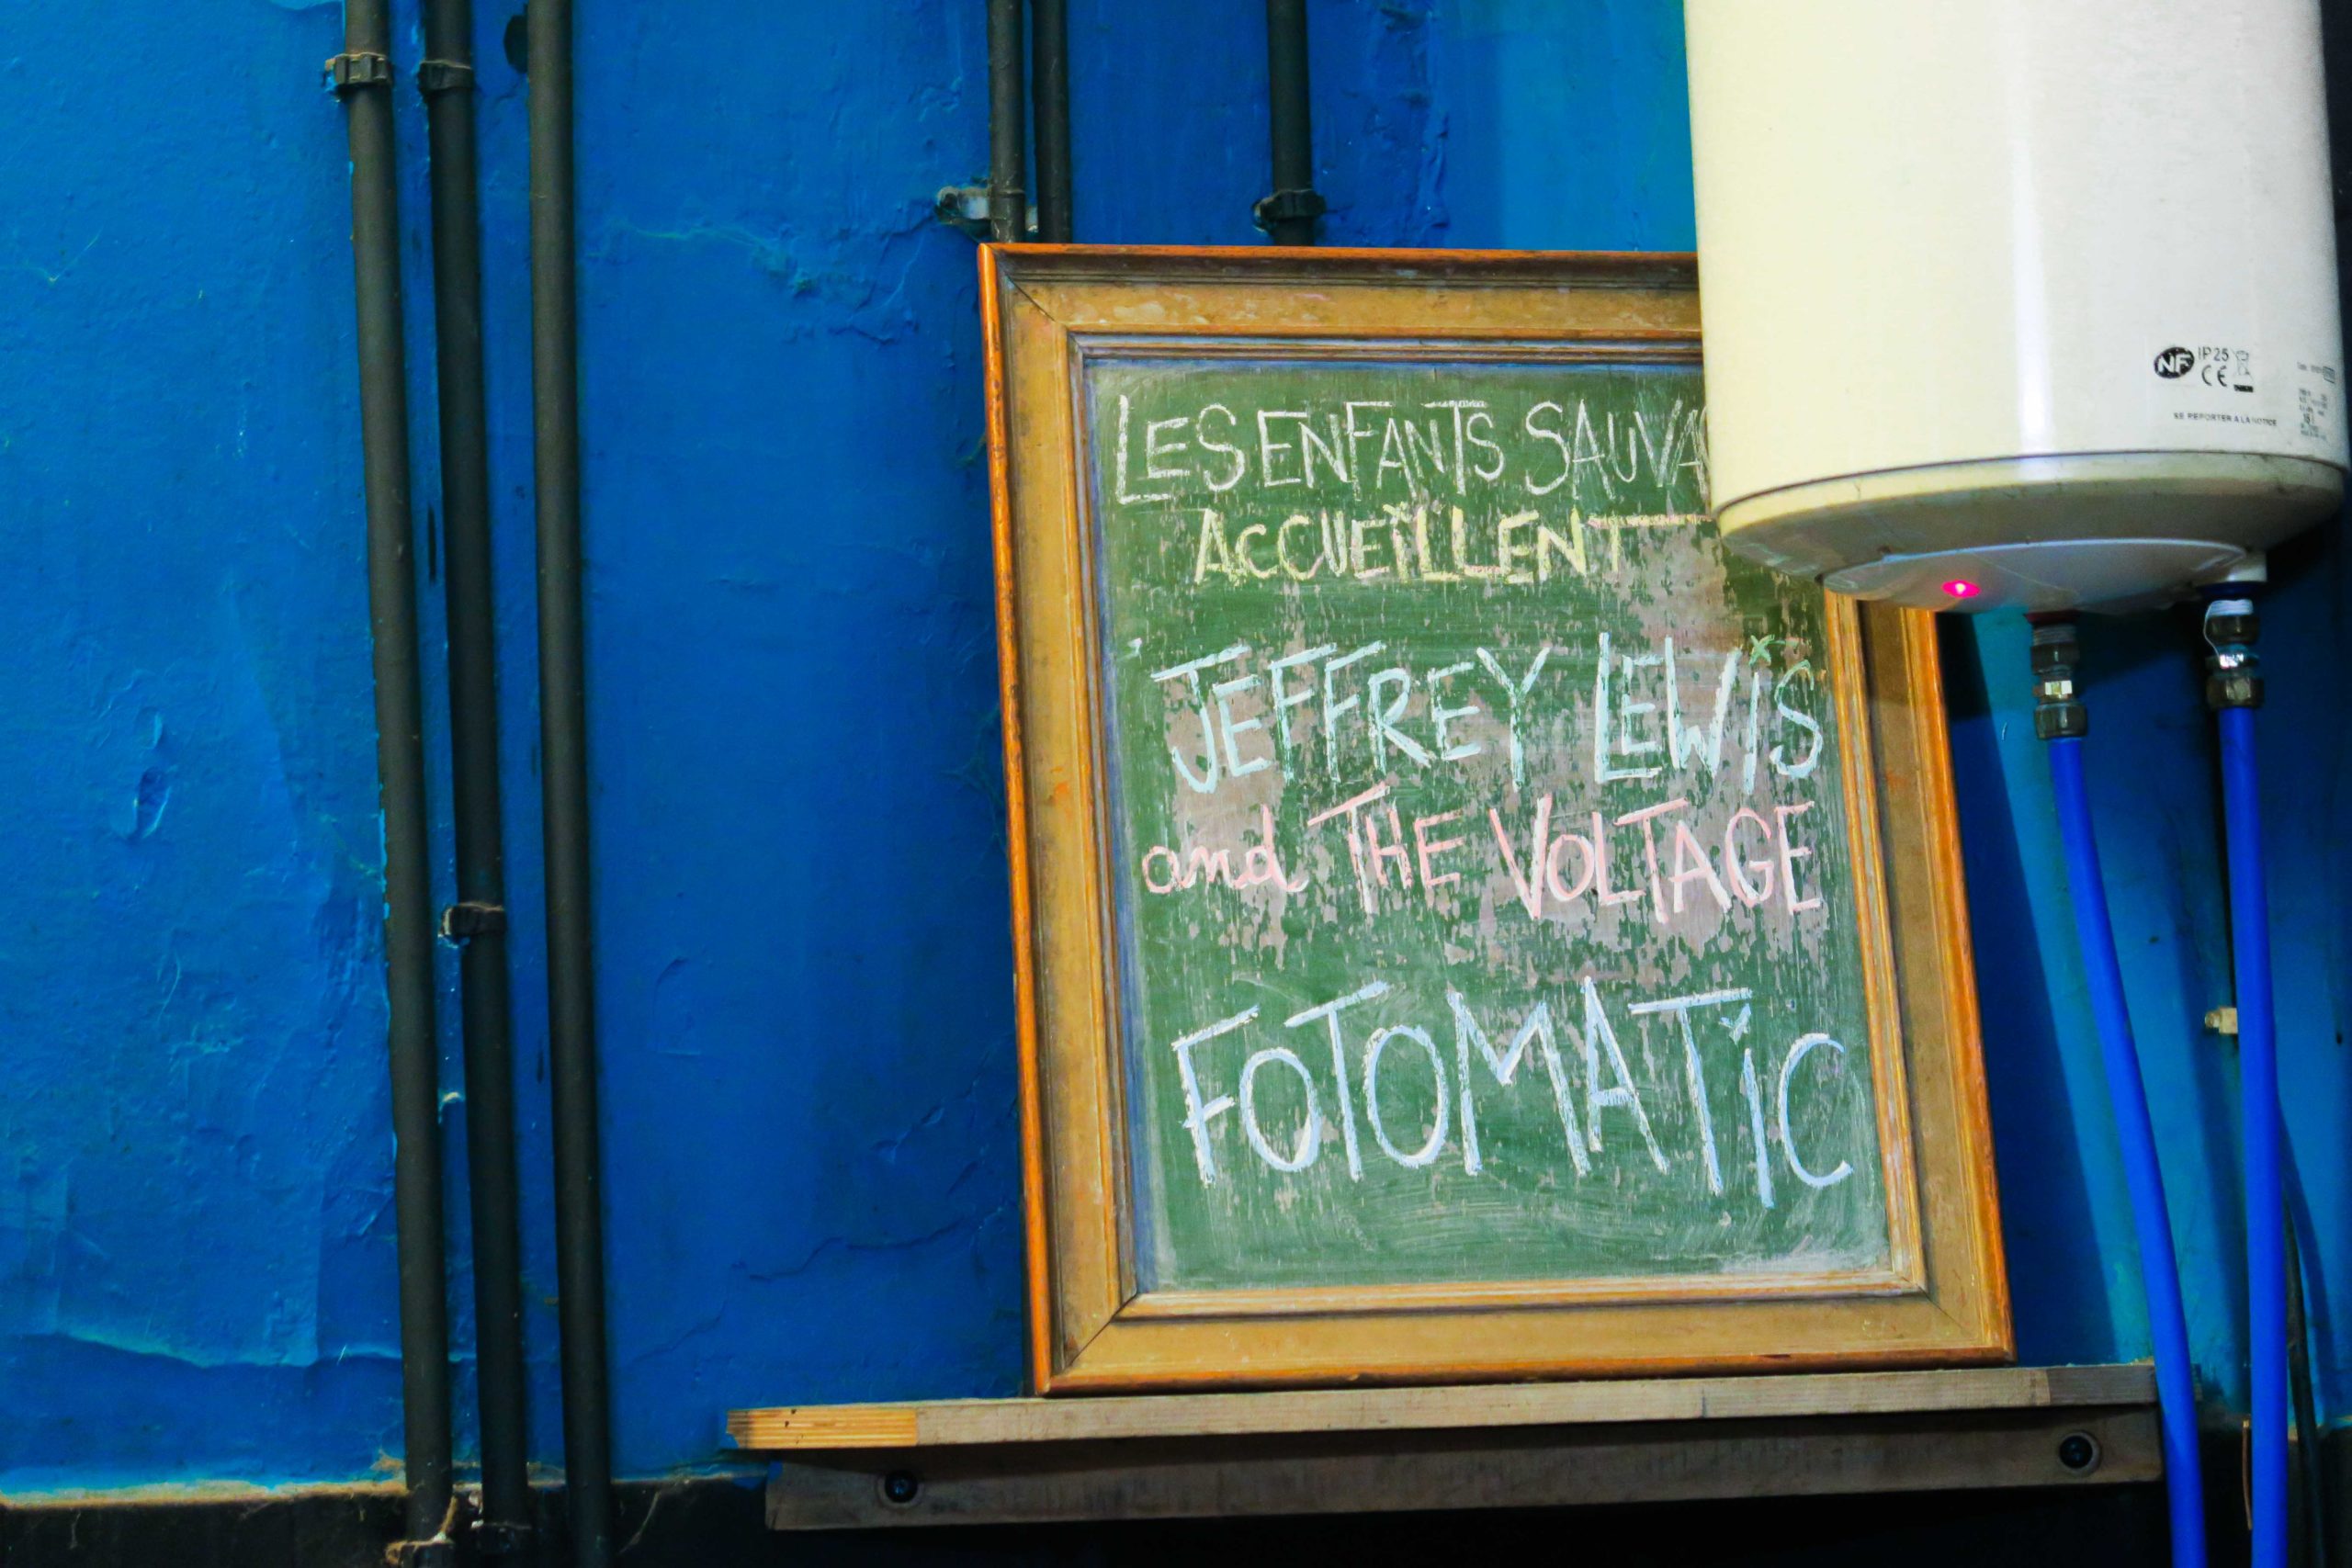 LES ENFANTS SAUVA
ACCUEILLENT
JEFFREY LEWIS
and THE VOLTAGE
FOTOMATIC
NF IP25
CE
SE REPORTER A LA NOTICE